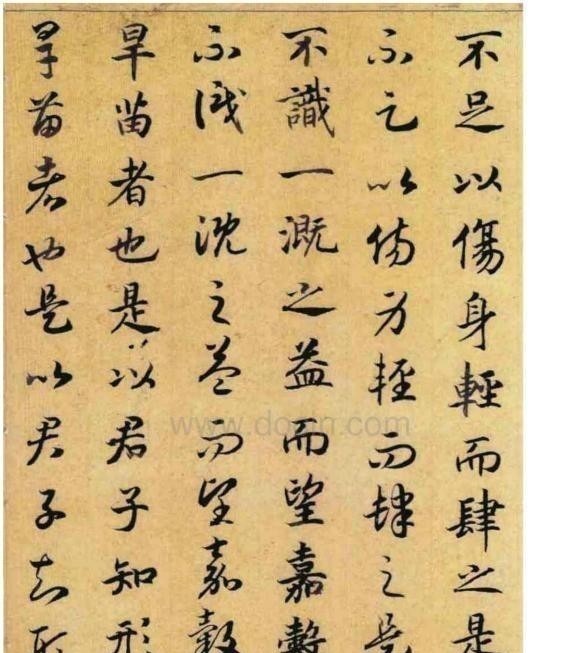 不足以傷身輕而肆之是
不足以傷身輕而肆之是
不識一溉之益而望嘉穀
不識一溉之益而望嘉穀
旱苗者也是以君子知形
旱苗者也是以君子知形
www.docin.com